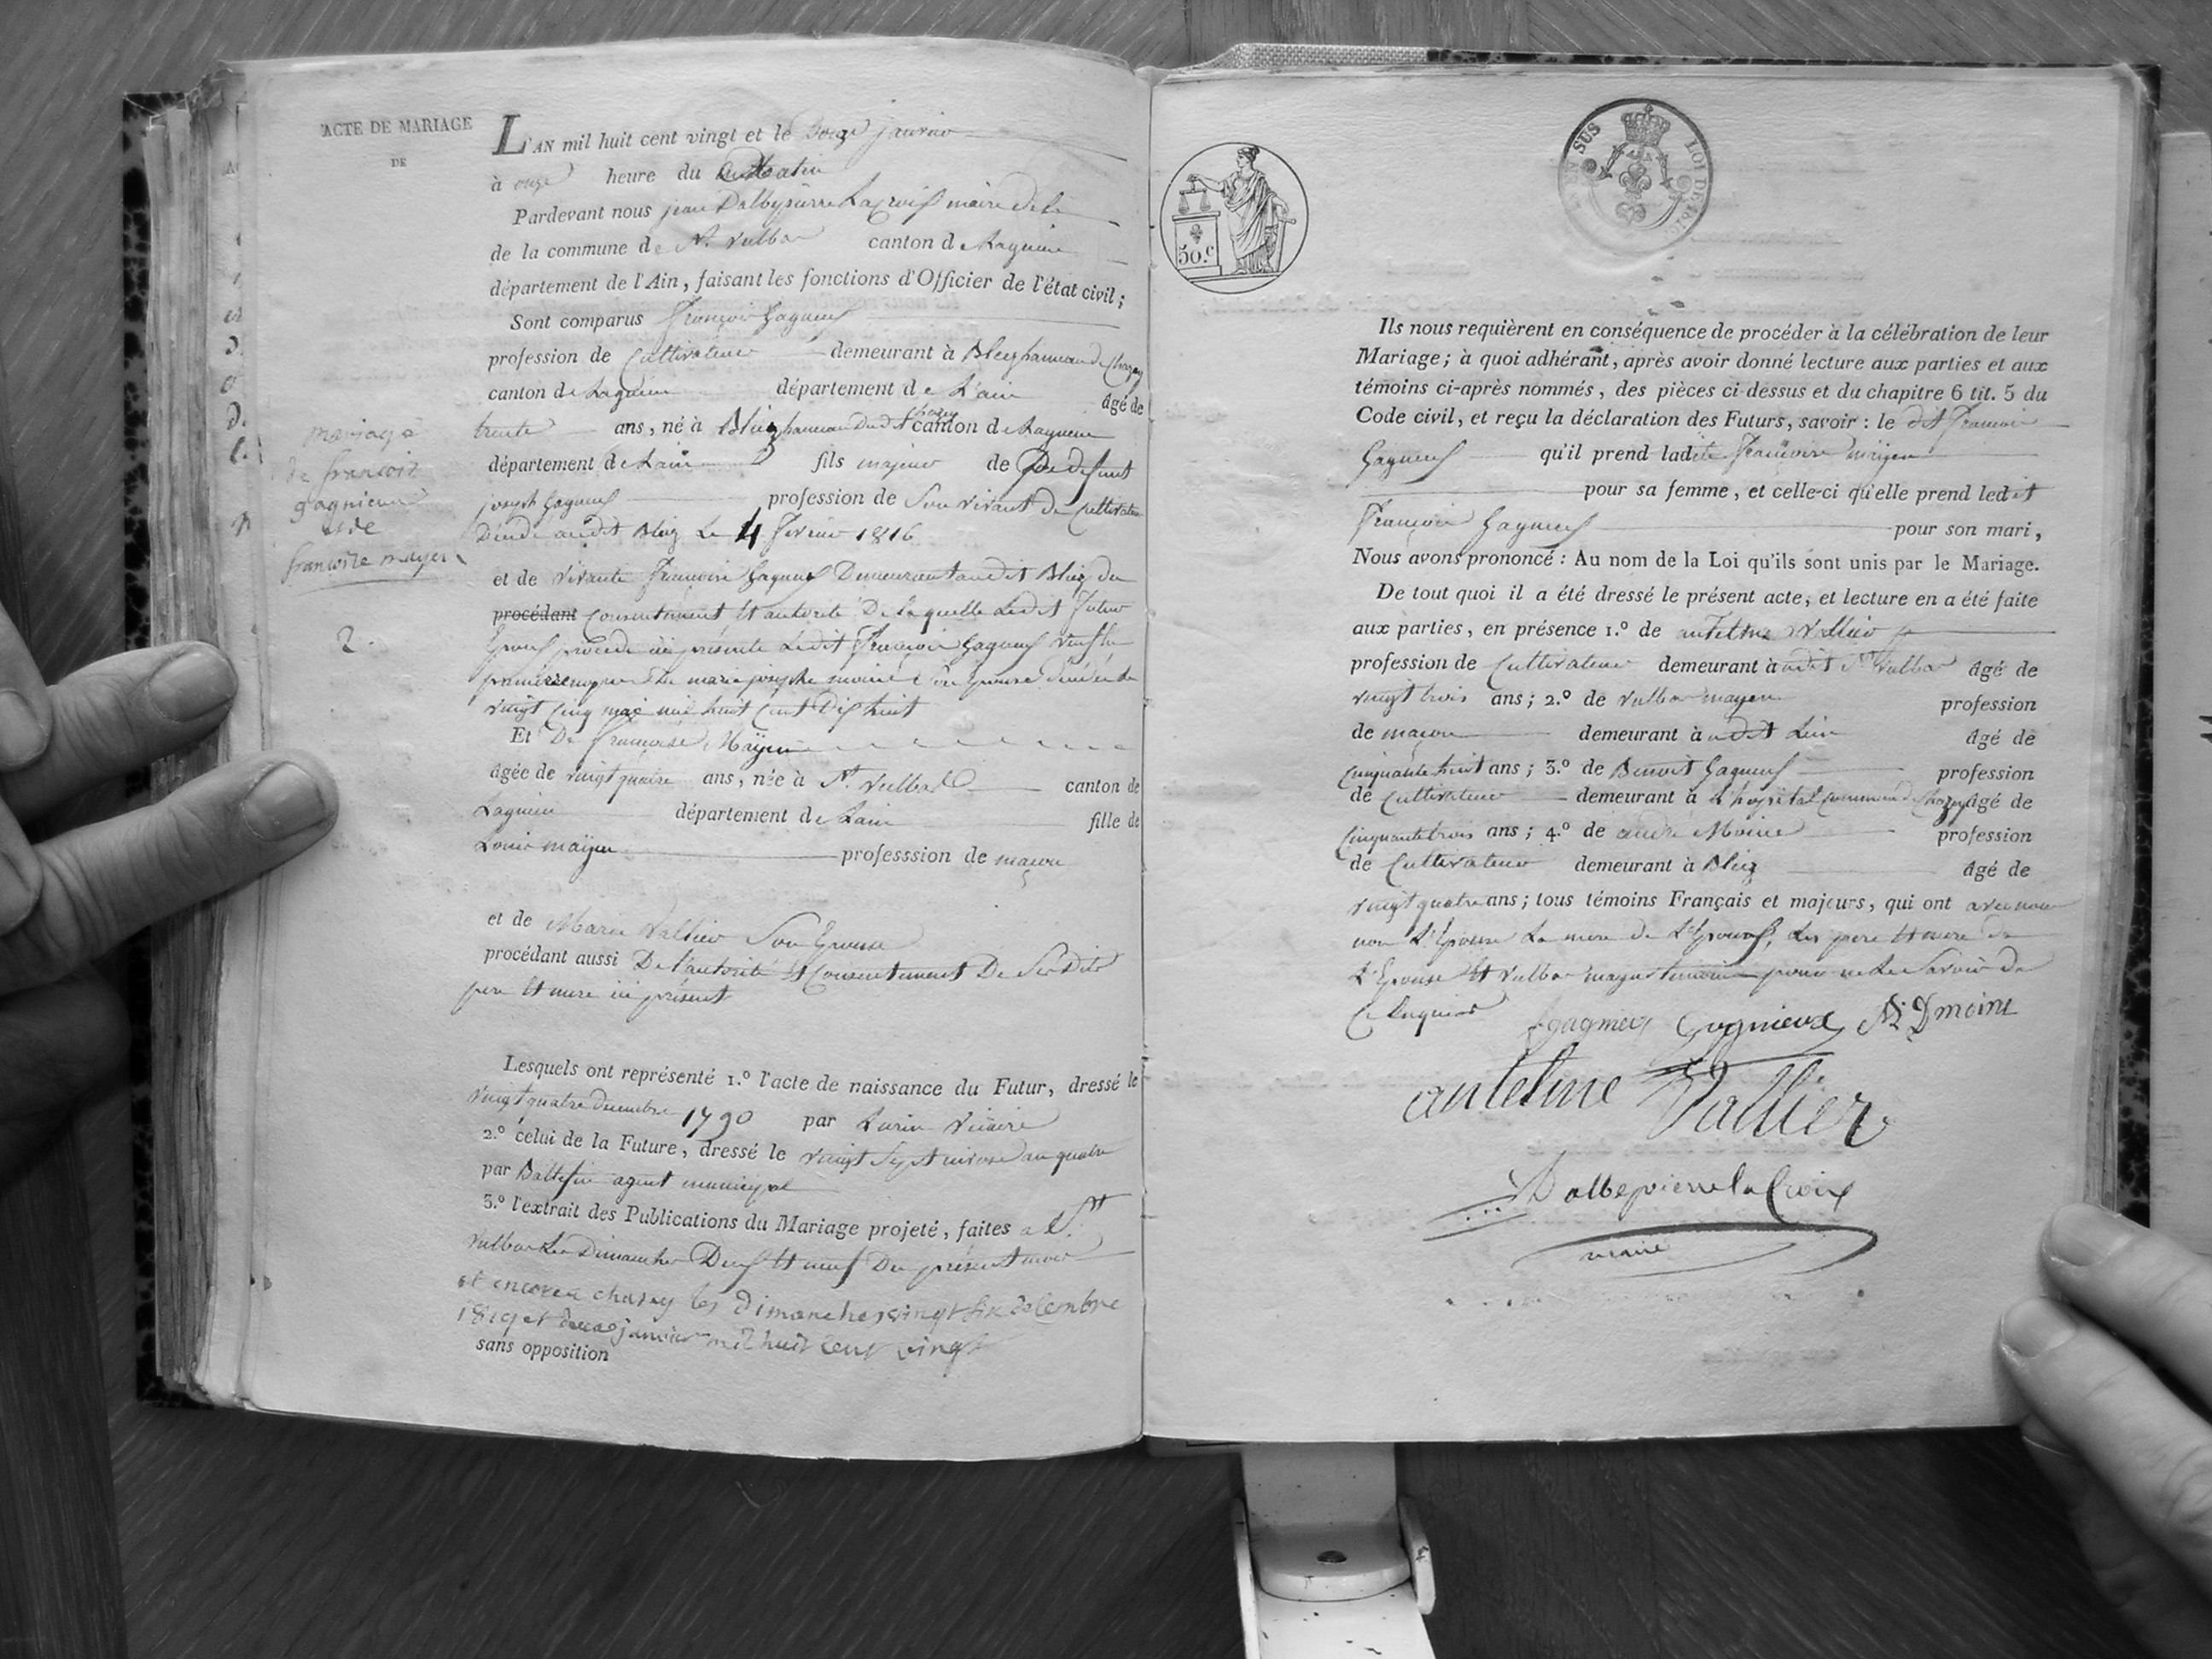 ACTE DE MARIAGE
DE
mariage
de francois
gagnieux
et de
francoise mayen
2.
L'AN mil huit cent vingt et le Douze janvier
à onze heure du Matin
Pardevant nous jean Dalbepierre Lacroix maire de la
de la commune de St. Vulbas canton de Lagnieu
département de l'Ain, faisant les fonctions d'Officier de l'état civil;
Sont comparus François Gagneux
profession de Cultivateur demeurant à Bleiz hameau de Chazey
canton de Lagnieu département de L'ain âgé de
trente ans, né à Bleiz hameau dudit chazey canton de Lagnieu
département de Lain fils majeur de defunt
joseph Gagneux profession de Son vivant de Cultivateur
Décédé audit Bleiz Le 4 fevrier 1816
et de vivante Françoise Gagneux Demeurant audit Bleiz du
procédant Consentement et autorité De laquelle Ledit futur
Epoux procede ici présente Ledit François Gagneux veuf en
premiere noces de marie josephe moine Son Epouse décédée le
vingt Cinq mai mil huit Cent Dix huit
Et De françoise Mayen
âgée de vingt quatre ans, née à St. Vulbas canton de
Lagnieu département de Lain fille de
Louis mayen professsion de maçon
et de Marie Vallier Son Epouse
procédant aussi De l'autorité et Consentement De Ses Dits
pere et mere ici présent
Lesquels ont représenté 1.º l'acte de naissance du Futur, dressé le
vingt quatre decembre 1790 par Vicaire
2.º celui de la Future, dressé le vingt Sept nivose an quatre
par agent municipal
3.º l'extrait des Publications du Mariage projeté, faites a St
Vulbas Les Dimanches Deux et neuf Du présent mois
et encore a chasey les dimanches vingt six decembre
1819 et deux janvier mil huit cent vingt
sans opposition
50.c
SUS
LOI DE
Ils nous requièrent en conséquence de procéder à la célébration de leur
Mariage; à quoi adhérant, après avoir donné lecture aux parties et aux
témoins ci-après nommés, des pièces ci-dessus et du chapitre 6 tit. 5 du
Code civil, et reçu la déclaration des Futurs, savoir : le dit François
Gagneux qu'il prend ladite Françoise mayen
pour sa femme, et celle-ci qu'elle prend ledit
François Gagneux pour son mari,
Nous avons prononcé : Au nom de la Loi qu'ils sont unis par le Mariage.
De tout quoi il a été dressé le présent acte, et lecture en a été faite
aux parties, en présence 1.º de antelme Vallier
profession de Cultivateur demeurant à udit St Vulbas âgé de
vingt trois ans; 2.º de Vulbas mayen profession
de maçon demeurant à udit Lieu âgé de
Cinquante huit ans; 3.º de Benoit Gagneux profession
de Cultivateur demeurant à L'hopital Commune de Chazey âgé de
Cinquante trois ans; 4.º de andré Moine profession
de Cultivateur demeurant à Bleiz âgé de
vingt quatre ans; tous témoins Français et majeurs, qui ont avec nous
non L'Epouse La mere de L'Epoux, Les pere et mere de
L'Epouse et Vulbas mayen temoin pour ne Le Savoir de
Ce Requis
fgagnieux Gagnieux moine
antelme Vallier
Dalbepierre la Croix
maire